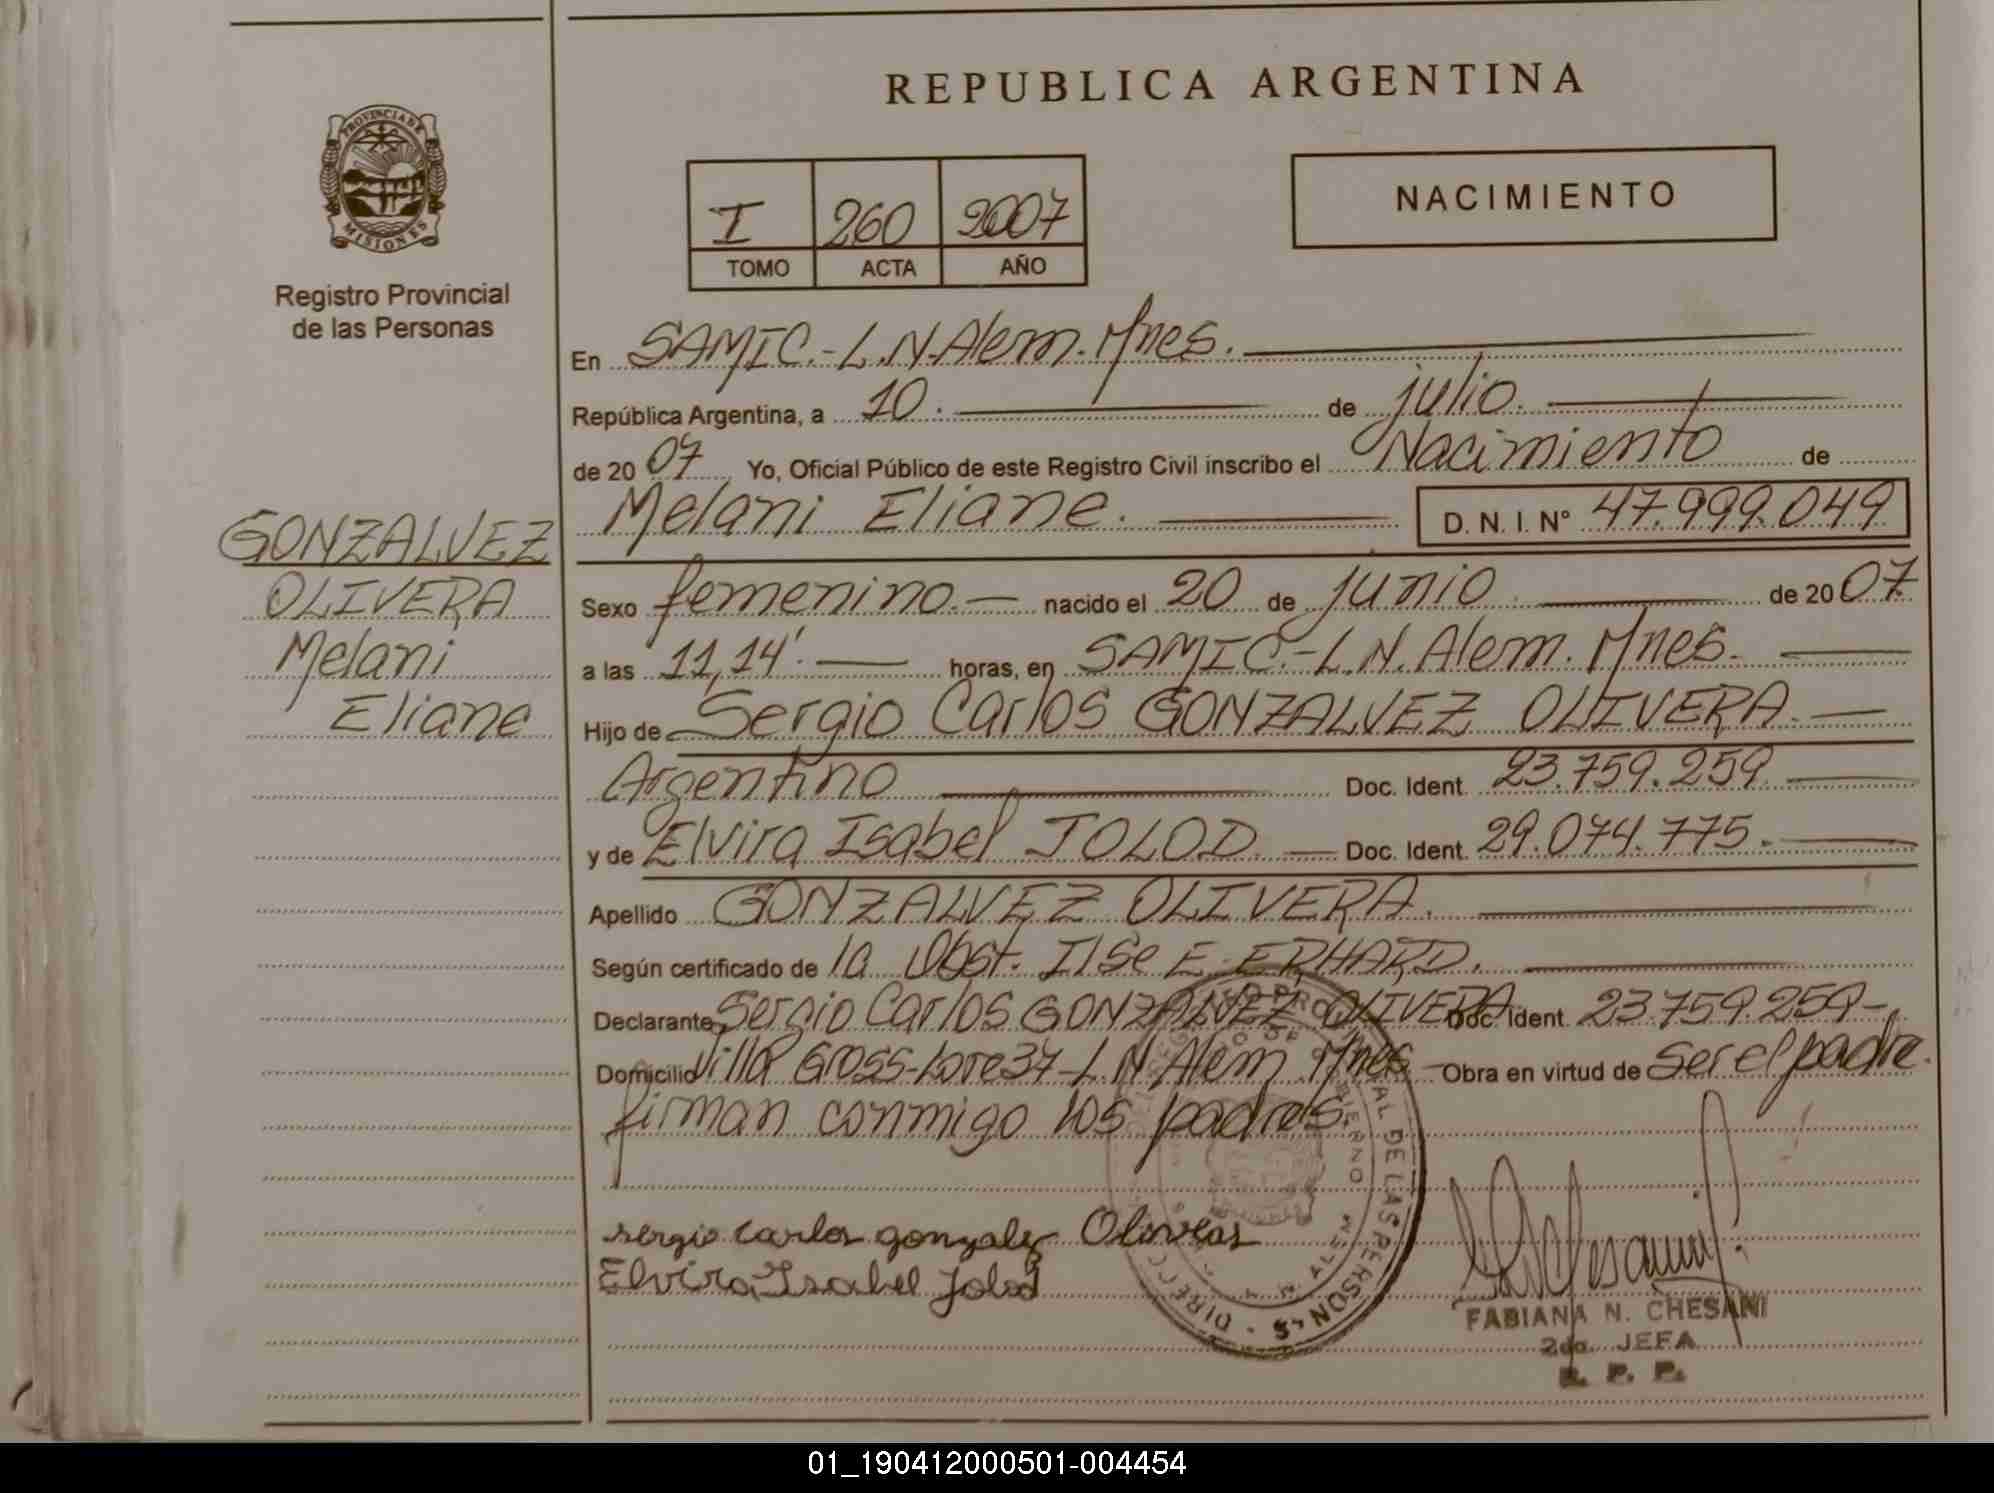 REPUBLICA ARGENTINA
PROVINCIA DE
MISIONES
Registro Provincial
de las Personas
I 260 2007
TOMO ACTA AÑO
NACIMIENTO
En SAMIC.-L.N.Alem.Mnes.
República Argentina, a 10. de julio.
de 2007 Yo, Oficial Público de este Registro Civil inscribo el Nacimiento de
Melani Eliane. D. N. I. Nº 47.999.049
GONZALVEZ
OLIVERA
Melani
Eliane
Sexo femenino.- nacido el 20 de junio de 2007.
a las 11,14'. horas, en SAMIC.-L.N.Alem.Mnes.
Hijo de Sergio Carlos GONZALVEZ OLIVERA.
Argentino Doc. Ident. 23.759.259
y de Elvira Isabel JOLOD. Doc. Ident. 29.074.775.
Apellido GONZALVEZ OLIVERA.
Según certificado de la Obst. Ilse E. ERHARD.
Declarante Sergio Carlos GONZALVEZ OLIVERA Doc. Ident. 23.759.259-
Domicilio Villa Gross-Lote 37-L.N.Alem Mnes Obra en virtud de ser el padre.
firman conmigo los padres.
sergio carlos gonzalez Oliveras
Elvira Isabel Jolod
DIRECC PROVINCIAL DE LAS PERSONAS
ALEM
FABIANA N. CHESANI
2da. JEFA
R. P. P.
01_190412000501-004454